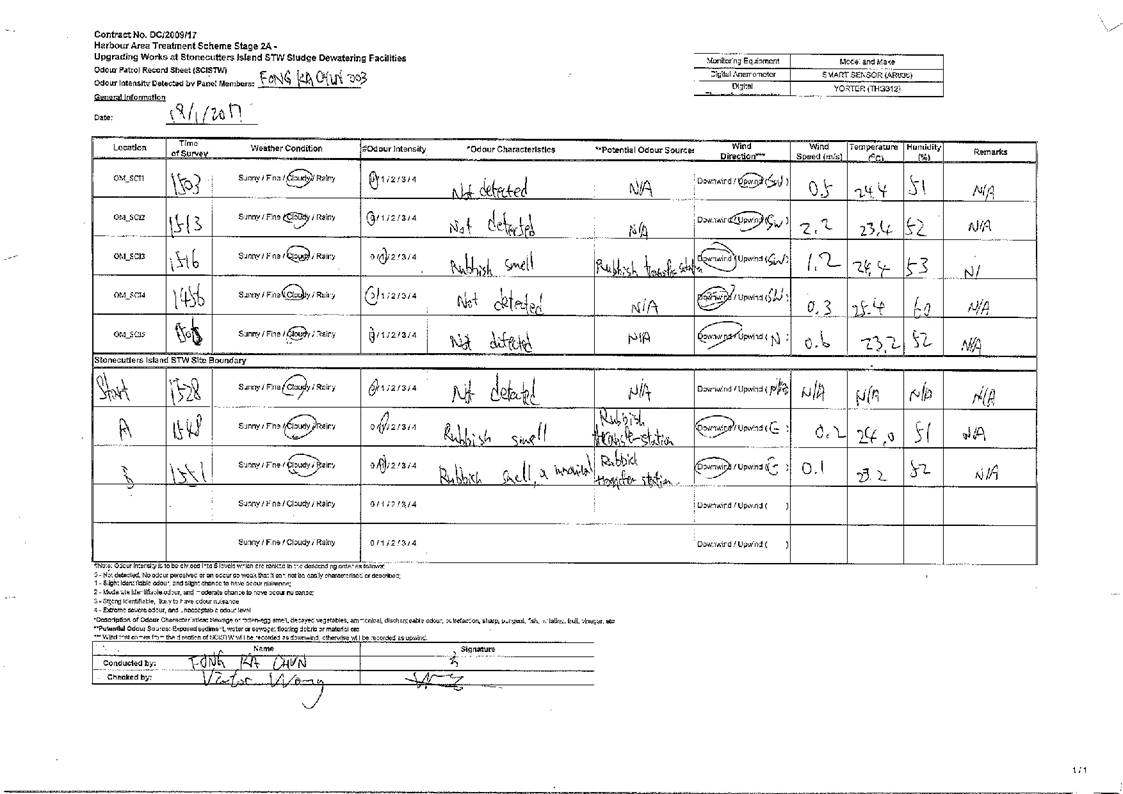 Contract No. DC/2009/17
Harbour Area Treatment Scheme Stage 2A -
Upgrading Works at Stonecutters Island STW Sludge Dewatering Facilities
Odour Patrol Record Sheet (SCISTW)
Odour Intensity Detected by Panel Members: FONG KA CHUN 303
General Information
Date: 18/1/2017
Monitoring Equipment Model and Make
Digital Anemometer SMART SENSOR (AR836)
Digital YORTER (THG312)
Location Time of Survey Weather Condition #Odour Intensity *Odour Characteristics **Potential Odour Source: Wind Direction*** Wind Speed (m/s) Temperature (°C) Humidity (%) Remarks
OM_SCI1 1503 Sunny / Fine / Cloudy / Rainy 0/1/2/3/4 Not detected N/A Downwind / Upwind (SW) 0.5 24.4 51 N/A
OM_SCI2 1513 Sunny / Fine / Cloudy / Rainy 0/1/2/3/4 Not detected N/A Downwind / Upwind (SW) 2.2 23.4 52 N/A
OM_SCI3 1516 Sunny / Fine / Cloudy / Rainy 0/1/2/3/4 Rubbish smell Rubbish transfer station Downwind / Upwind (SW) 1.2 24.4 53 N/
OM_SCI4 1456 Sunny / Fine / Cloudy / Rainy 0/1/2/3/4 Not detected N/A Downwind / Upwind (SW) 0.3 25.4 60 N/A
OM_SCI5 Sunny / Fine / Cloudy / Rainy 0/1/2/3/4 Not detected N/A Downwind / Upwind (N) 0.6 23.2 52 N/A
Stonecutters Island STW Site Boundary
Start 1528 Sunny / Fine / Cloudy / Rainy 0/1/2/3/4 Not detected N/A Downwind / Upwind (N/A) N/A N/A N/A N/A
A 1548 Sunny / Fine / Cloudy / Rainy 0/1/2/3/4 Rubbish smell Rubbish transfer station Downwind / Upwind (E) 0.2 24.0 51 N/A
B 1551 Sunny / Fine / Cloudy / Rainy 0/1/2/3/4 Rubbish smell, Rubbish transfer station Downwind / Upwind (E) 0.1 23.2 52 N/A
Sunny / Fine / Cloudy / Rainy 0/1/2/3/4 Downwind / Upwind ( )
Sunny / Fine / Cloudy / Rainy 0/1/2/3/4 Downwind / Upwind ( )
#Note: Odour intensity is to be divided into 5 levels which are ranked in the descending order as follows:
0 - Not detected. No odour perceived or an odour so weak that it can not be easily characterised or described;
1 - Slight identifiable odour, and slight chance to have odour nuisance;
2 - Moderate identifiable odour, and moderate chance to have odour nuisance;
3 - Strong identifiable, likely to have odour nuisance
4 - Extreme severe odour, and unacceptable odour level
*Description of Odour Characteristics: Sewage or rotten-egg smell, decayed vegetables, ammonical, dischargeable odour, putrefaction, sharp, pungent, fish, irritating, fruit, vinegar, etc
**Potential Odour Source: Exposed sediment, water or sewage; floating debris or material etc
*** Wind that comes from the direction of SCISTW will be recorded as downwind, otherwise will be recorded as upwind.
Name Signature
Conducted by: FONG KA CHUN
Checked by: Victor Wong
1 / 1